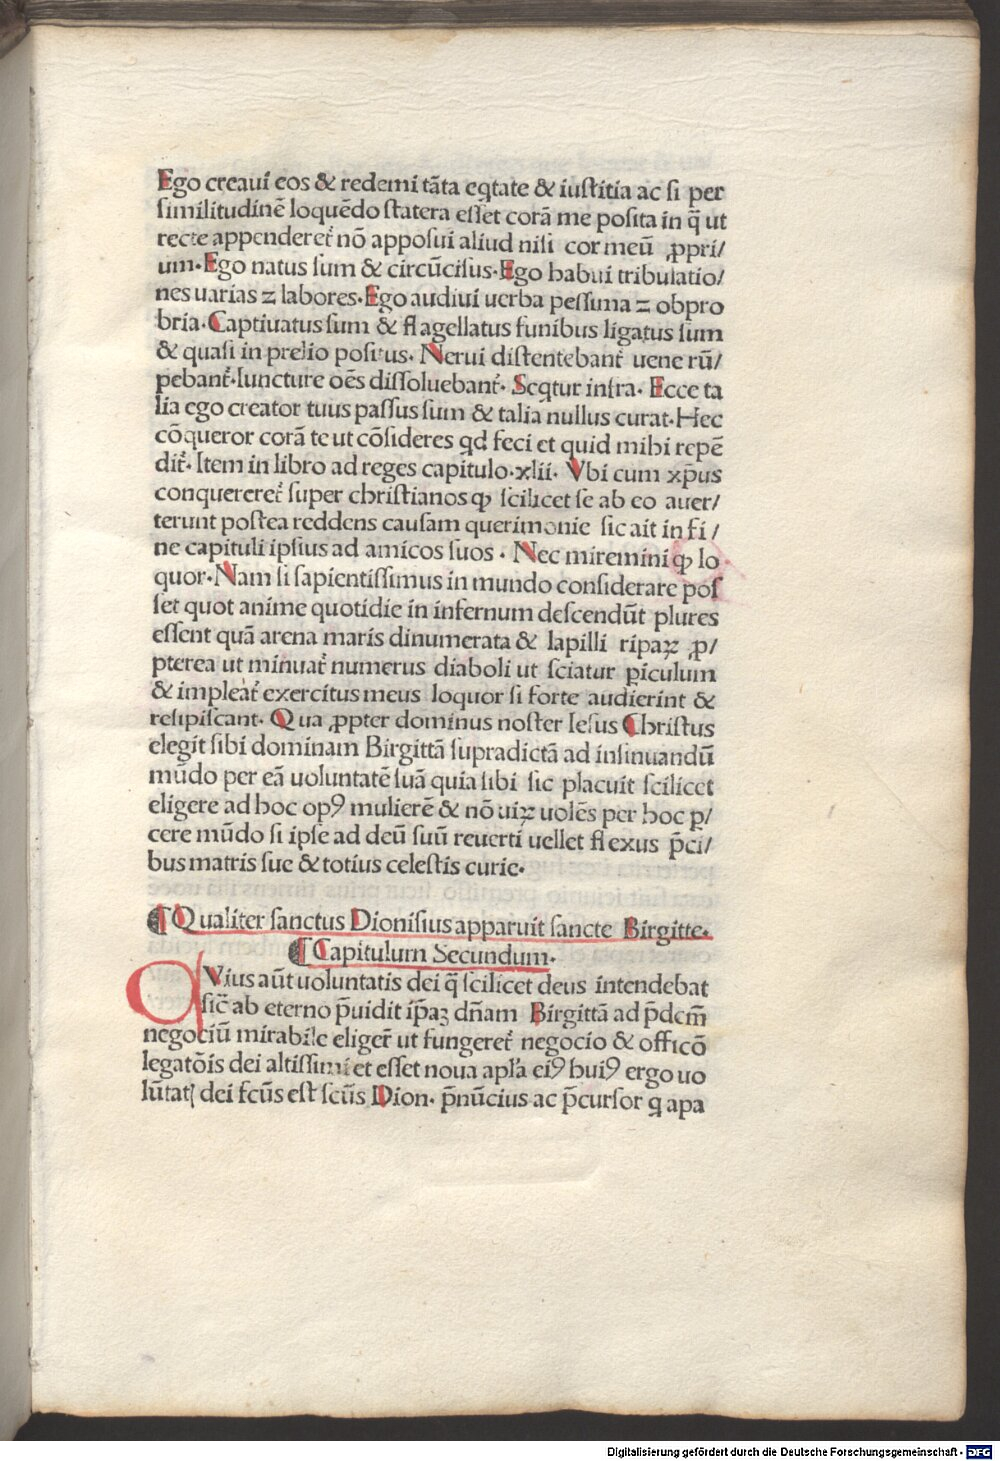 Ego creaui eos & redemi tāta eq̄tate & iustitia ac si per
similitudinē loquēdo statera esset corā me posita in q̄ ut
recte appenderet᷑ nō apposui aliud nisi cor meū ꝓpri/
um. Ego natus sum & circūcisus. Ego habui tribulatio/
nes uarias ⁊ labores. Ego audiui uerba pessima ⁊ obpro
bria. Captiuatus sum & flagellatus funibus ligatus sum
& quasi in prelio positus. Nerui distentebant᷑ uene rū/
pebant᷑. Iuncture oēs dissoluebant᷑. Seqtur infra. Ecce ta
lia ego creator tuus passus sum & talia nullus curat. Hec
cōqueror corā te ut cōsideres qd feci et quid mihi repē
dit᷑. Item in libro ad reges capitulo .xlii. Vbi cum xp̄us
conquereret᷑ super christianos ꝙ scilicet se ab eo auer/
terunt postea reddens causam querimonie sic ait in fi/
ne capituli ipsius ad amicos suos . Nec miremini ꝙ lo
quor. Nam si sapientissimus in mundo considerare pos
set quot anime quotidie in infernum descendūt plures
essent quā arena maris dinumerata & lapilli ripaꝝ ꝓ/
pterea ut minuat᷑ numerus diaboli ut sciatur ꝑiculum
& impleat᷑ exercitus meus loquor si forte audierint &
resipiscant. Qua ꝓpter dominus noster Iesus Christus
elegit sibi dominam Birgittā supradictā ad insinuandū
mūdo per eā uoluntatē suā quia sibi sic placuit scilicet
eligere ad hoc opꝰ mulierē & nō uiꝝ uolēs per hoc ꝑ/
cere mūdo si ipse ad deū suū reuerti uellet flexus p̄ci/
bus matris sue & totius celestis curie.
¶ Qualiter sanctus Dionisius apparuit sancte Birgitte.
¶ Capitulum Secundum.
QVius aūt uoluntatis dei q̄ scilicet deus intendebat
sic̄ ab eterno p̄uidit ip̄aꝫ dn̄am Birgittā ad p̄dcm̄
negociū mirabile eliger᷑ ut fungeret᷑ negocio & officō
legatōis dei altissimi et esset noua apl̄a eiꝰ huiꝰ ergo uo
lūtatꝭ dei fcūs est scūs Dion. p̄nūcius ac p̄cursor q apa
Digitalisierung gefördert durch die Deutsche Forschungsgemeinschaft - DFG